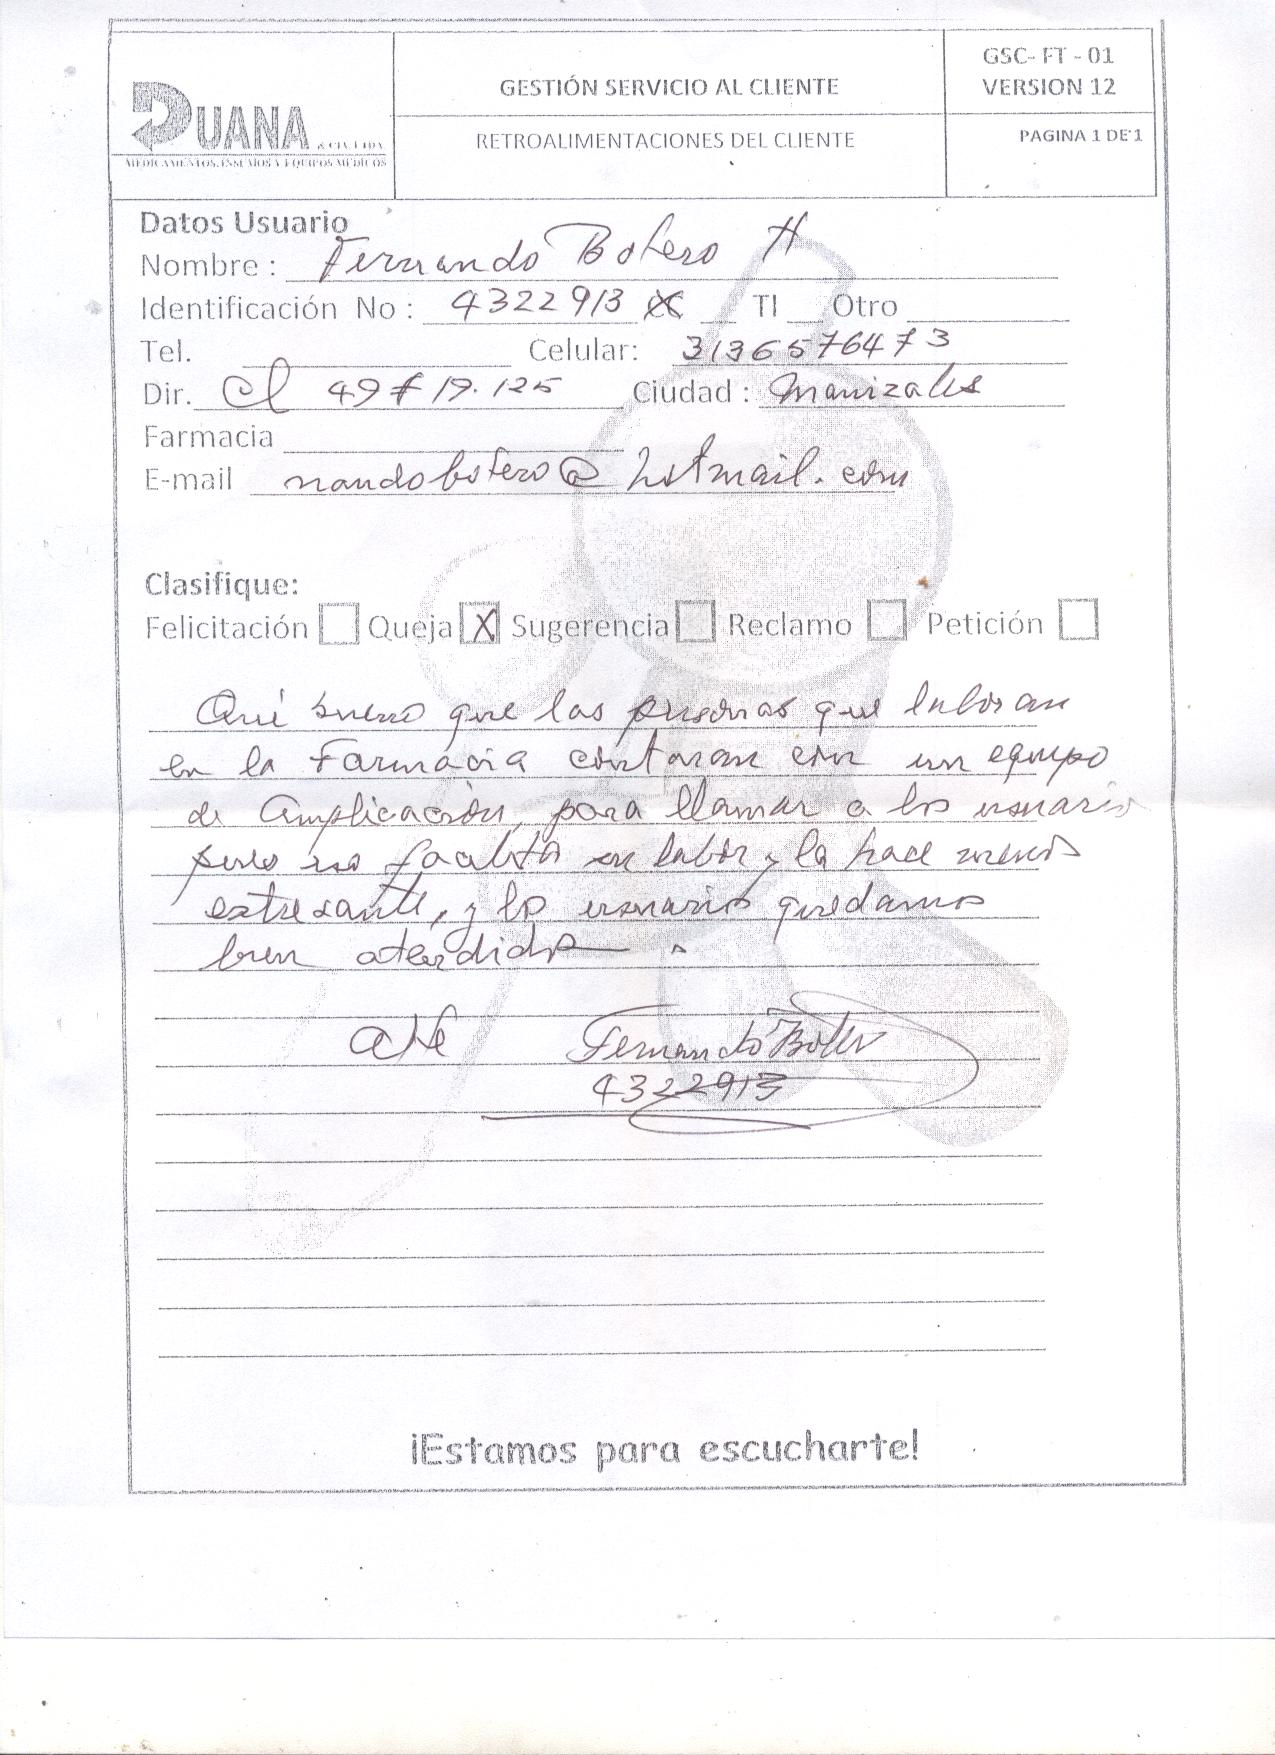 DUANA & CIA. LTDA.
MEDICAMENTOS, INSUMOS Y EQUIPOS MÉDICOS
GESTIÓN SERVICIO AL CLIENTE
RETROALIMENTACIONES DEL CLIENTE
GSC- FT - 01
VERSION 12
PAGINA 1 DE 1
Datos Usuario
Nombre : Fernando Botero H
Identificación No : 4322913 TI Otro
Tel. Celular: 3136576473
Dir. Cl 49 # 19.125 Ciudad : Manizales
Farmacia
E-mail nandobotero@hotmail.com
Clasifique:
Felicitación Queja X Sugerencia Reclamo Petición
Qué bueno que las personas que laboran
en la Farmacia contaran con un equipo
de amplicación, para llamar a los usuarios
pues facilita su labor y la hace menos
estresante, y los usuarios quedamos
bien atendidos.
Atte Fernando Botero
4322913
¡Estamos para escucharte!